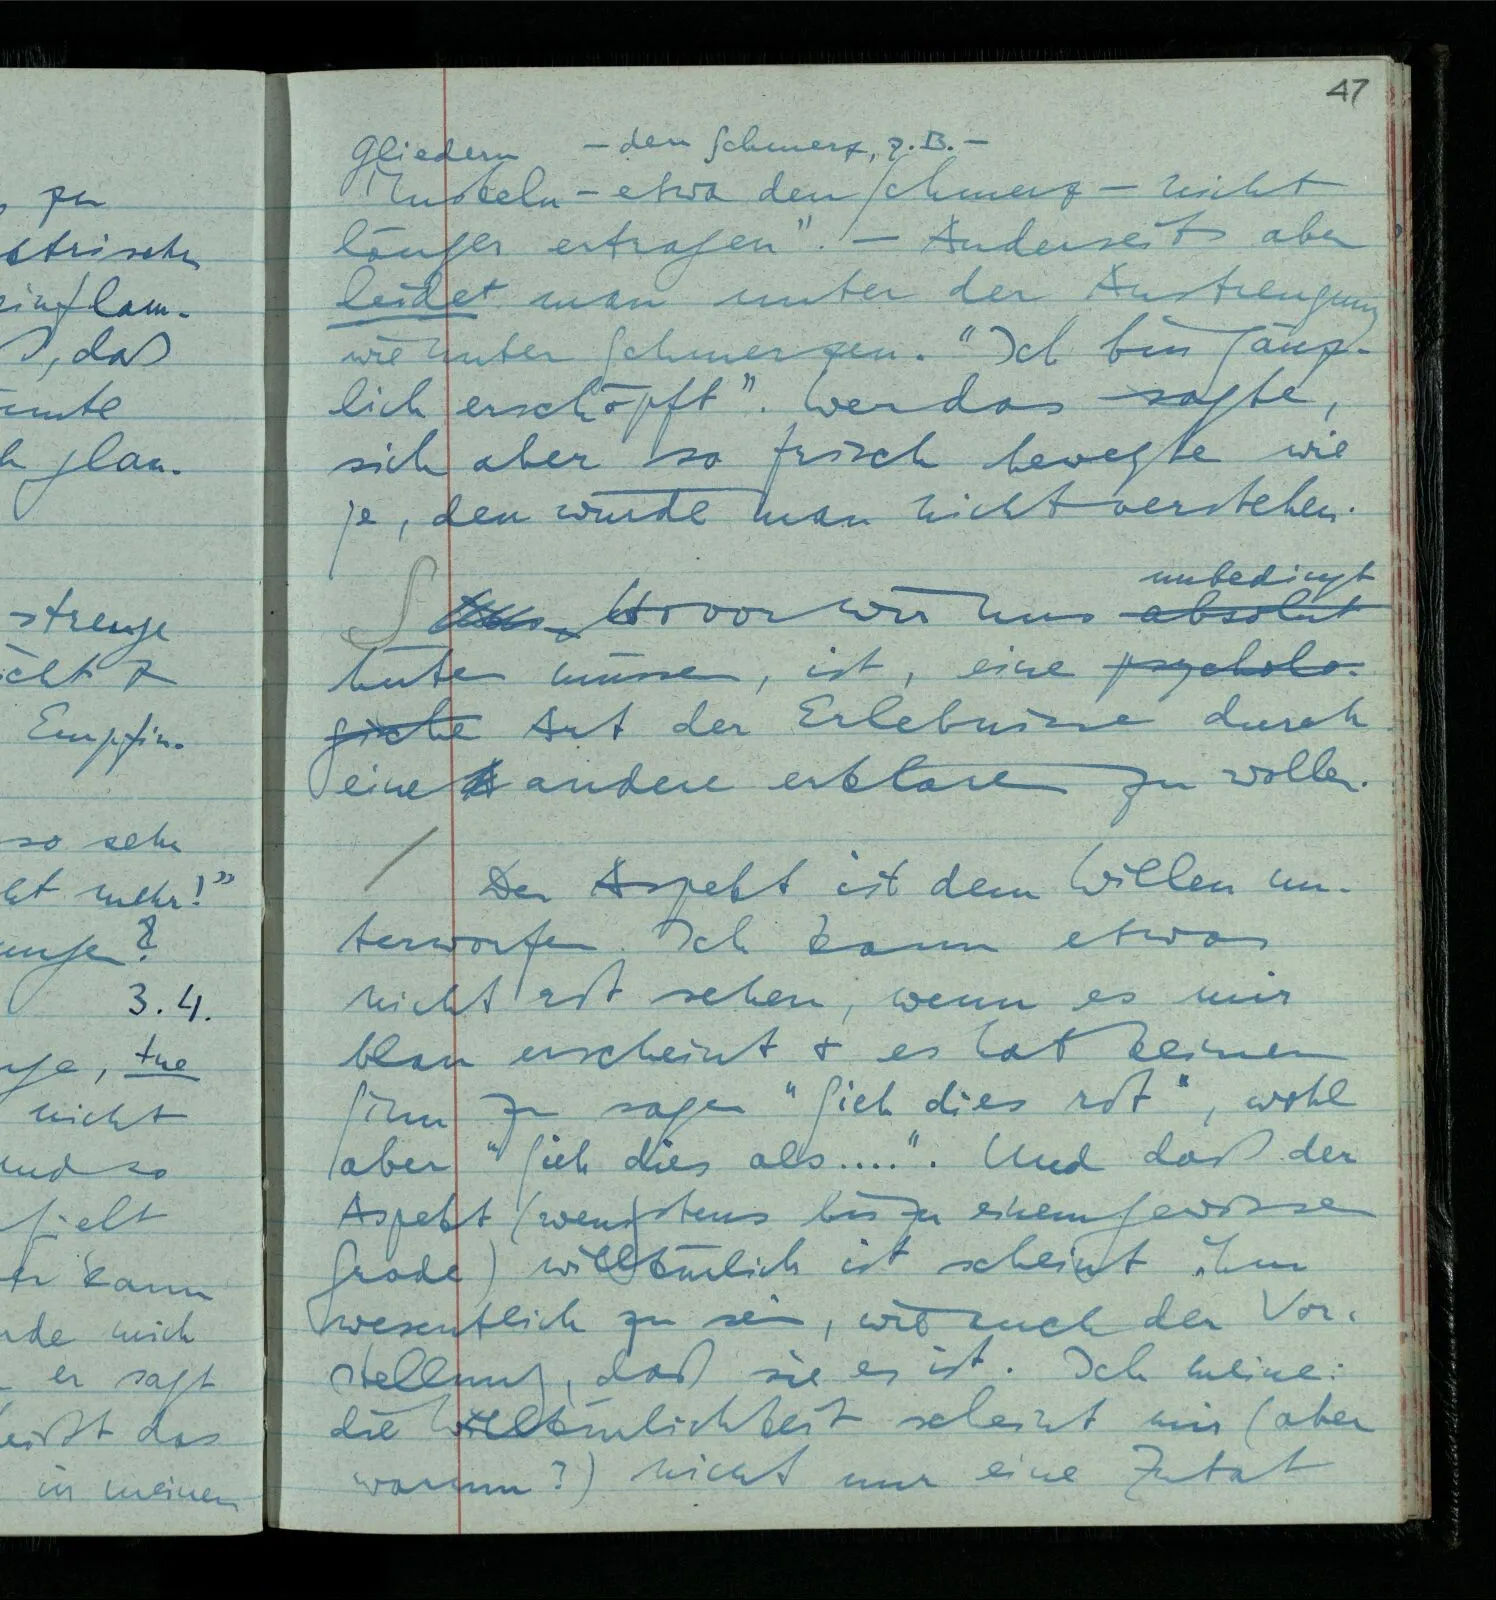 zu
strischen
einflam-
daß
glau-
strenge
Empfin-
so sehr
mehr!"
3.4.
tue
nicht
und so
fielt
er kann
mich
er sagt
heißt das
in meinen
47
Gliedern – den Schmerz, z.B. –
Muskeln – etwa den Schmerz – nicht
länger ertragen". – Anderseits aber
leidet man unter der Anstrengung
wie unter Schmerzen. "Ich bin gänz-
lich erschöpft". Wer das sagte,
sich aber so frisch bewegte wie
je, den würde man nicht verstehen.
unbedingt
Wovor wir uns absolut
hüten müssen, ist, eine psycholo-
gische Art der Erlebnisse durch
eine andere erklären zu wollen.
Der Aspekt ist dem Willen un-
terworfen. Ich kann etwas
nicht rot sehen, wenn es mir
blau erscheint & es hat keinen
Sinn zu sagen "Sieh dies rot", wohl
aber "Sieh dies als....". Und daß der
Aspekt (wenigstens bis zu einem gewissen
Grade) willkürlich ist scheint ihm
wesentlich zu sein, wie auch der Vor-
stellung, daß sie es ist. Ich meine:
die Willkürlichkeit scheint mir (aber
warum?) nicht nur eine Zutat